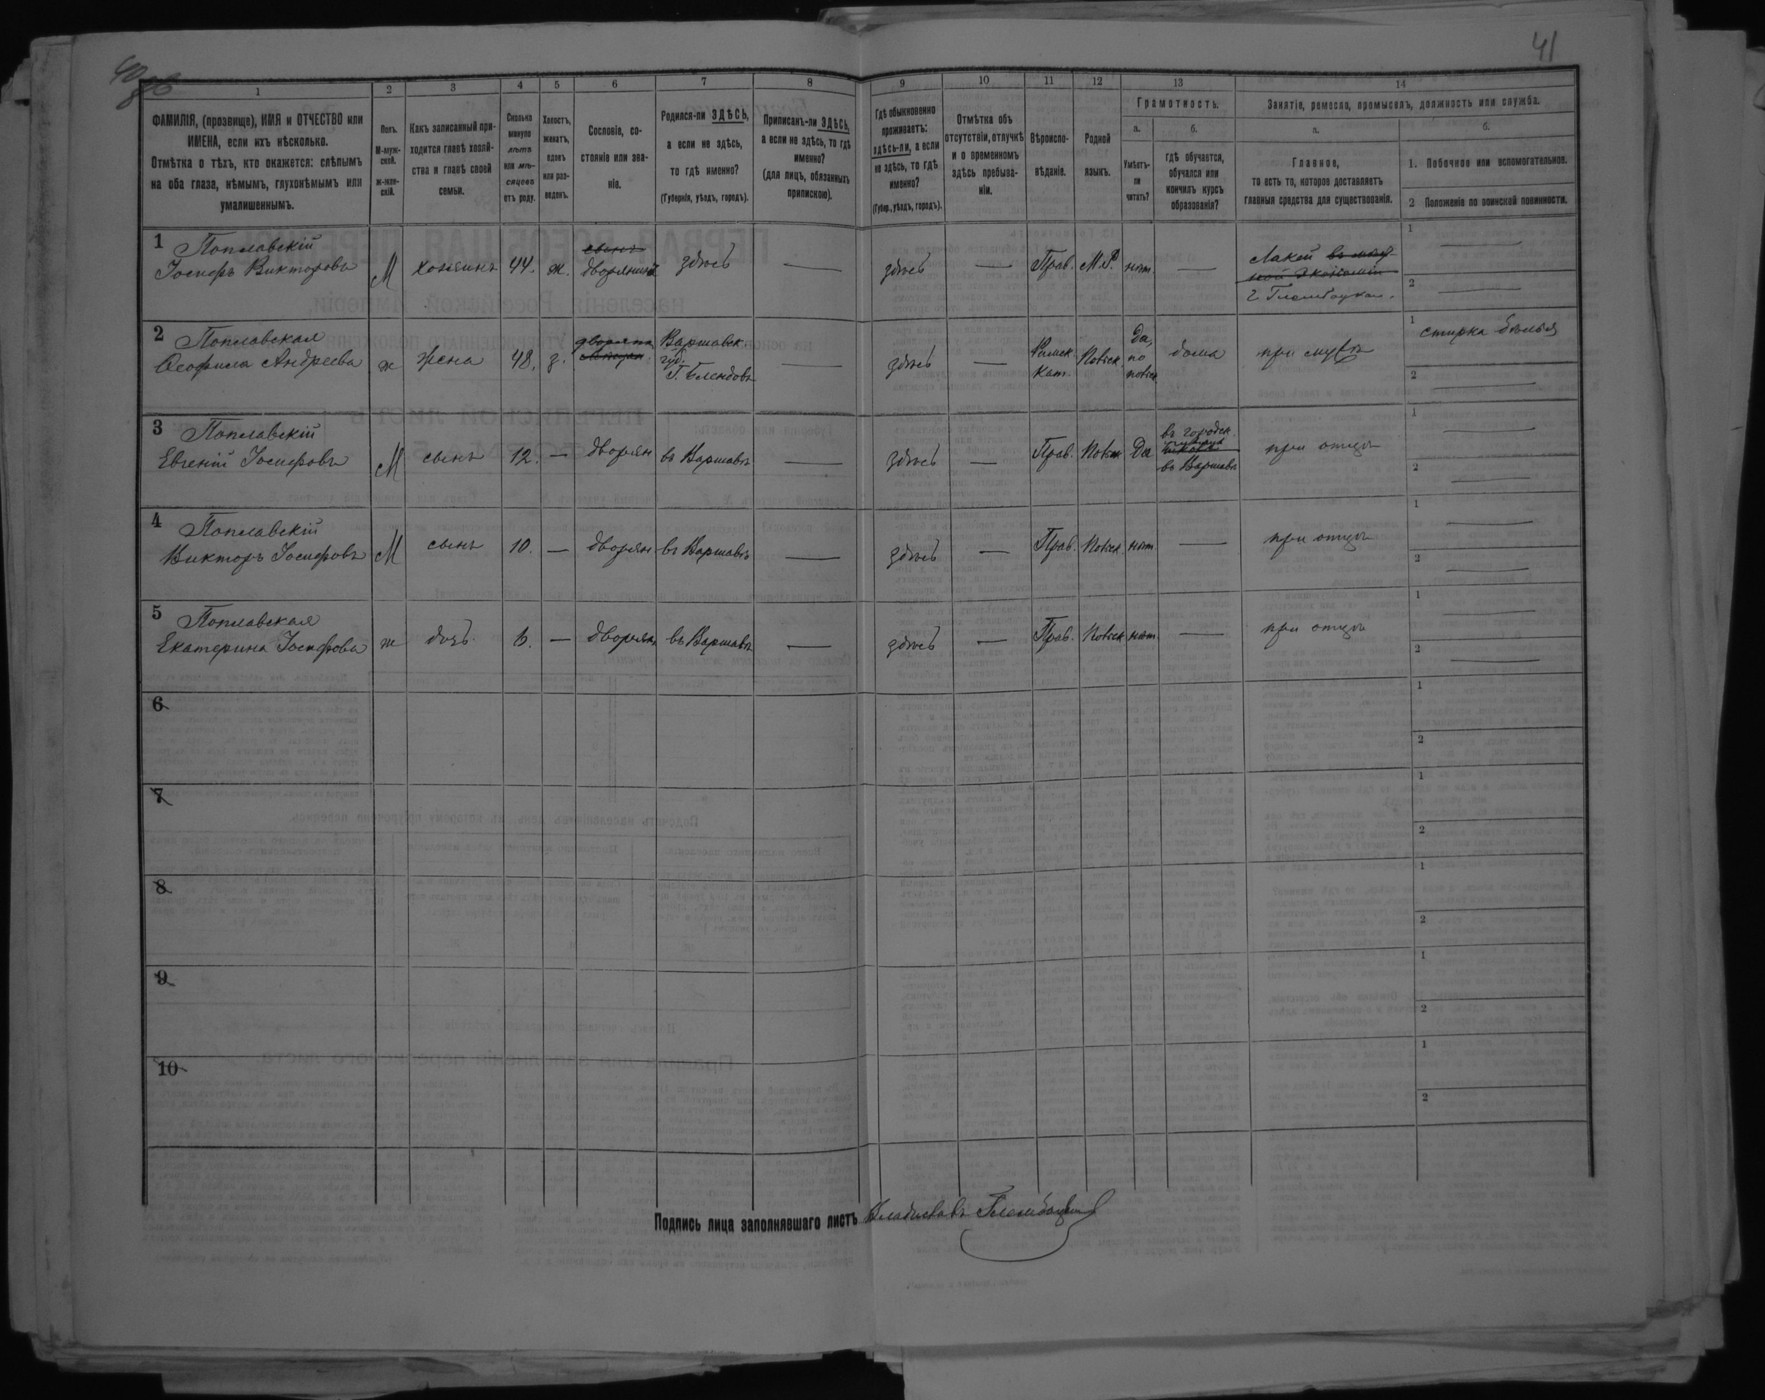 40
86
41
1
2
3
4
5
6
7
8
9
10
11
12
13
14
ФАМИЛІЯ, (прозвище), ИМЯ и ОТЧЕСТВО или
ИМЕНА, если ихъ нѣсколько.
Отмѣтка о тѣхъ, кто окажется: слѣпымъ
на оба глаза, нѣмымъ, глухонѣмымъ или
умалишеннымъ.
Полъ.
М-муж-
ской.
ж-жен-
скій.
Какъ записанный при-
ходится главѣ хозяй-
ства и главѣ своей
семьи.
Сколько
минуло
лѣтъ
или мѣ-
сяцевъ
отъ роду.
Холостъ,
женатъ,
вдовъ
или раз-
веденъ.
Сословіе, со-
стояніе или зва-
ніе.
Родился-ли ЗДѢСЬ,
а если не здѣсь,
то гдѣ именно?
(Губернія, уѣздъ, городъ).
Приписанъ-ли ЗДѢСЬ,
а если не здѣсь, то гдѣ
именно?
(для лицъ, обязанныхъ
припискою).
Гдѣ обыкновенно
проживаетъ:
здѣсь-ли, а если
не здѣсь, то гдѣ
именно?
(Губер., уѣздъ, городъ).
Отмѣтка объ
отсутствіи, отлучкѣ
и о временномъ
здѣсь пребыва-
ніи.
Вѣроиспо-
вѣданіе.
Родной
языкъ.
Грамотность.
а.
Умѣетъ-
ли
читать?
б.
гдѣ обучается,
обучался или
кончилъ курсъ
образованія?
Занятіе, ремесло, промыселъ, должность или служба.
а.
Главное,
то есть то, которое доставляетъ
главныя средства для существованія.
б.
1. Побочное или вспомогательное.
2 Положеніе по воинской повинности.
1 Поплавскій
Іосифъ Викторовъ М хозяинъ 44. ж. дворянинъ здѣсь — здѣсь — Прав. М.Р. нѣт — Лакей
1 —
2 —
2 Поплавская
Ѳеофила Андреева ж жена 48. з. Варшавск.
губ.
здѣсь — Римск.
Кат. Польск Да,
по
польск дома при мужѣ
1 стирка бѣлья
2 —
3 Поплавскій
Евгеній Іосифовъ М сынъ 12. — дворян въ Варшавѣ — здѣсь — Прав. Польск Да въ городск.
въ Варшавѣ при отцѣ
1 —
2 —
4 Поплавскій
Викторъ Іосифовъ М сынъ 10. — дворян въ Варшавѣ — здѣсь — Прав. Польск нѣт — при отцѣ
1 —
2 —
5 Поплавская
Екатерина Іосифова ж дочь 6. — дворян въ Варшавѣ — здѣсь — Прав. Польск нѣт — при отцѣ
1 —
2 —
6
1
2
7
1
2
8
1
2
9
1
2
10
1
2
Подпись лица заполнявшаго листъ Владиславъ